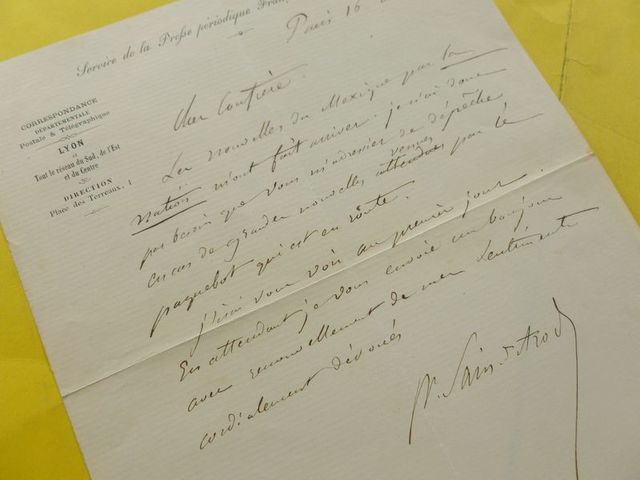 Service de la Presse périodique Fran
Paris 16
CORRESPONDANCE
DÉPARTEMENTALE
Postale & Télégraphique
LYON
et
Tout le réseau du Sud, de l'Est
et du Centre
DIRECTION
Place des Terreaux, 1
Cher Confrère.
Les nouvelles du Mexique par la
m'ont fait arriver. je n'ai donc
pas besoin que vous m'adressiez de dépêche
en cas de grandes nouvelles venues par le
attendues
paquebot qui est en route.
J'irai vous voir au premier jour.
En attendant je vous envoie un bonjour
avec renouvellement de mes sentiments
cordialement dévoués